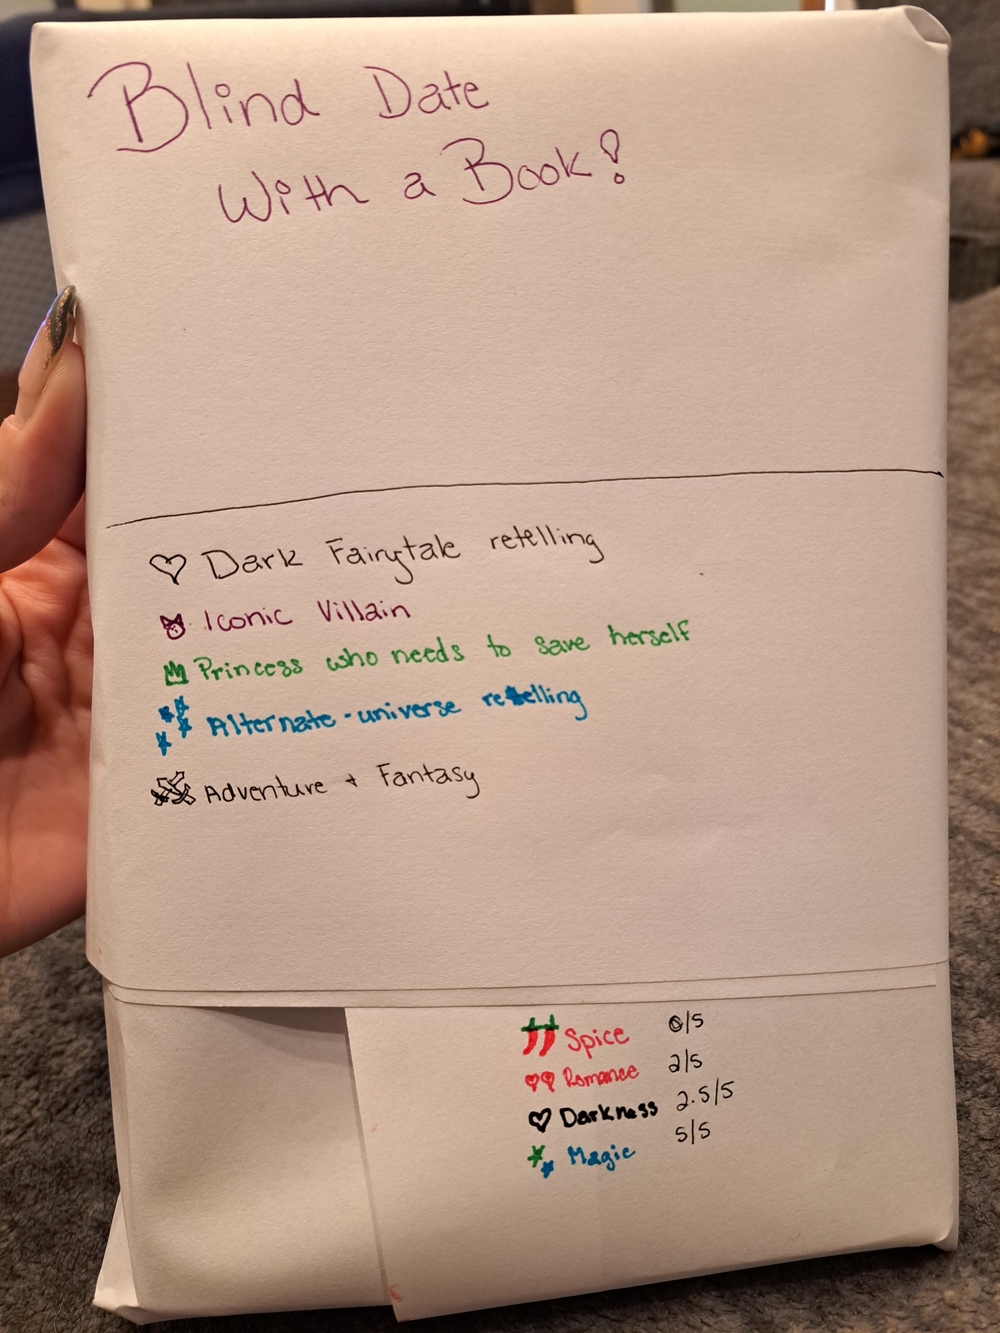 Blind Date
With a Book!
Dark Fairytale retelling
Iconic Villain
Princess who needs to save herself
Alternate-universe retelling
Adventure + Fantasy
Spice 0/5
Romance 2/5
Darkness 2.5/5
Magic 5/5